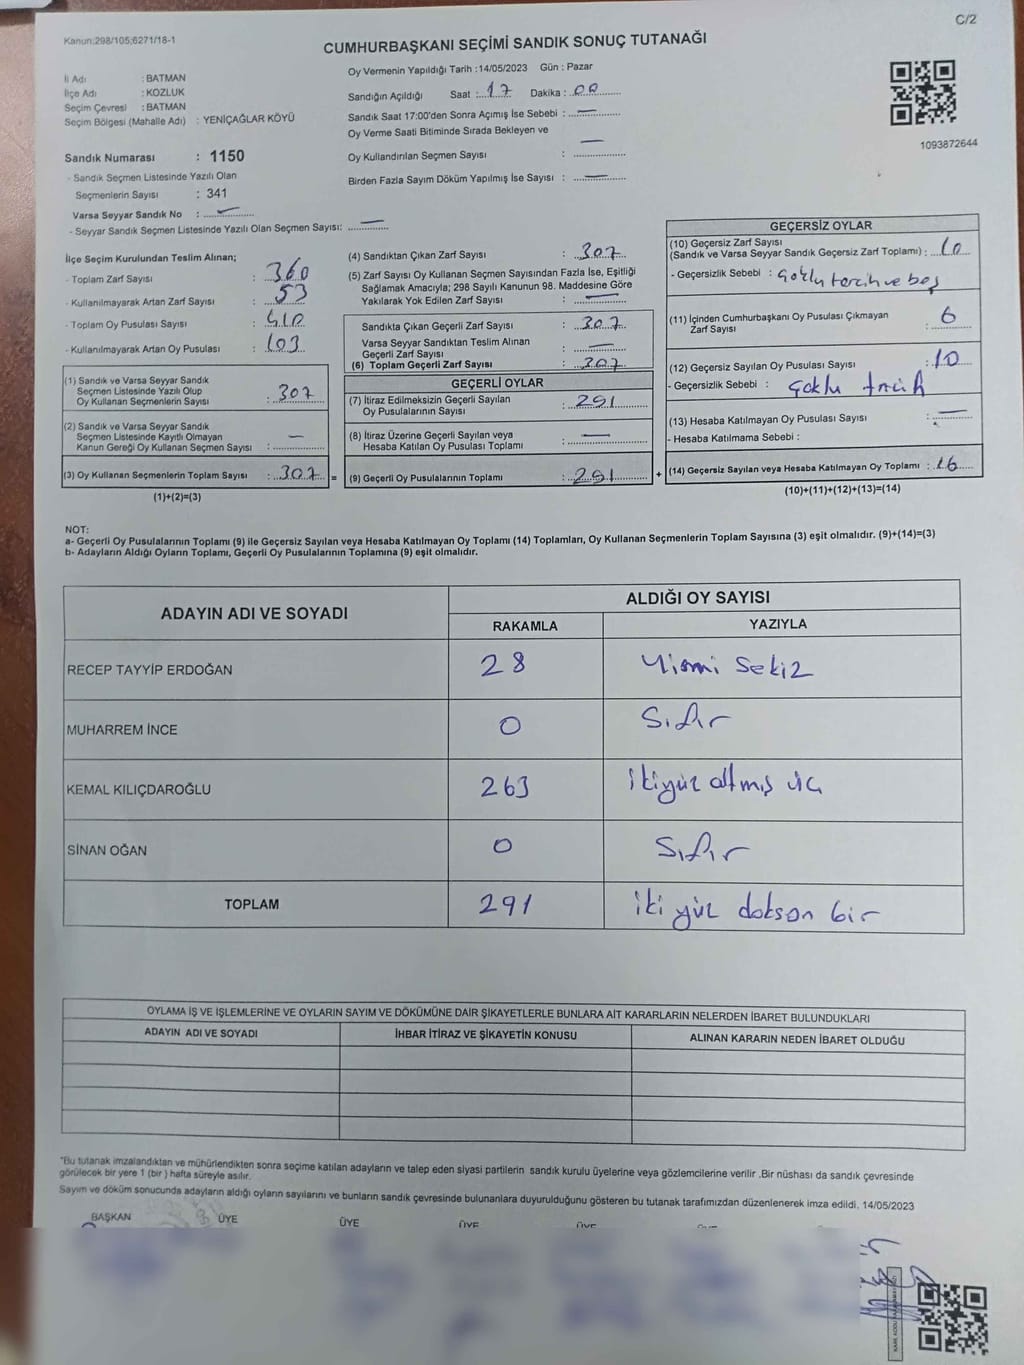 C/2
Kanun:298/105;6271/18-1
CUMHURBAŞKANI SEÇİMİ SANDIK SONUÇ TUTANAĞI
İl Adı : BATMAN
İlçe Adı : KOZLUK
Seçim Çevresi : BATMAN
Seçim Bölgesi (Mahalle Adı) : YENİÇAĞLAR KÖYÜ
Sandık Numarası : 1150
- Sandık Seçmen Listesinde Yazılı Olan
Seçmenlerin Sayısı : 341
Varsa Seyyar Sandık No : —
- Seyyar Sandık Seçmen Listesinde Yazılı Olan Seçmen Sayısı: —
Oy Vermenin Yapıldığı Tarih :14/05/2023 Gün : Pazar
Sandığın Açıldığı Saat : 17 Dakika : 00
Sandık Saat 17:00'den Sonra Açımış İse Sebebi : —
Oy Verme Saati Bitiminde Sırada Bekleyen ve
Oy Kullandırılan Seçmen Sayısı : —
Birden Fazla Sayım Döküm Yapılmış İse Sayısı : —
1093872644
İlçe Seçim Kurulundan Teslim Alınan;
- Toplam Zarf Sayısı : 360
- Kullanılmayarak Artan Zarf Sayısı : 53
- Toplam Oy Pusulası Sayısı : 410
- Kullanılmayarak Artan Oy Pusulası : 103
(1) Sandık ve Varsa Seyyar Sandık
Seçmen Listesinde Yazılı Olup
Oy Kullanan Seçmenlerin Sayısı : 307
(2) Sandık ve Varsa Seyyar Sandık
Seçmen Listesinde Kayıtlı Olmayan
Kanun Gereği Oy Kullanan Seçmen Sayısı : —
(3) Oy Kullanan Seçmenlerin Toplam Sayısı : 307 =
(1)+(2)=(3)
(4) Sandıktan Çıkan Zarf Sayısı : 307
(5) Zarf Sayısı Oy Kullanan Seçmen Sayısından Fazla İse, Eşitliği
Sağlamak Amacıyla; 298 Sayılı Kanunun 98. Maddesine Göre
Yakılarak Yok Edilen Zarf Sayısı : —
Sandıkta Çıkan Geçerli Zarf Sayısı : 307
Varsa Seyyar Sandıktan Teslim Alınan
Geçerli Zarf Sayısı : —
(6) Toplam Geçerli Zarf Sayısı : 307
GEÇERLİ OYLAR
(7) İtiraz Edilmeksizin Geçerli Sayılan
Oy Pusulalarının Sayısı : 291
(8) İtiraz Üzerine Geçerli Sayılan veya
Hesaba Katılan Oy Pusulası Toplamı : —
(9) Geçerli Oy Pusulalarının Toplamı : 291 +
GEÇERSİZ OYLAR
(10) Geçersiz Zarf Sayısı
(Sandık ve Varsa Seyyar Sandık Geçersiz Zarf Toplamı) : 10
- Geçersizlik Sebebi : Çoklu tercih ve boş
(11) İçinden Cumhurbaşkanı Oy Pusulası Çıkmayan
Zarf Sayısı : 6
(12) Geçersiz Sayılan Oy Pusulası Sayısı : 10
- Geçersizlik Sebebi : Çoklu
(13) Hesaba Katılmayan Oy Pusulası Sayısı : —
- Hesaba Katılmama Sebebi :
(14) Geçersiz Sayılan veya Hesaba Katılmayan Oy Toplamı : 16
(10)+(11)+(12)+(13)=(14)
NOT:
a- Geçerli Oy Pusulalarının Toplamı (9) ile Geçersiz Sayılan veya Hesaba Katılmayan Oy Toplamı (14) Toplamları, Oy Kullanan Seçmenlerin Toplam Sayısına (3) eşit olmalıdır. (9)+(14)=(3)
b- Adayların Aldığı Oyların Toplamı, Geçerli Oy Pusulalarının Toplamına (9) eşit olmalıdır.
ADAYIN ADI VE SOYADI ALDIĞI OY SAYISI
RAKAMLA YAZIYLA
RECEP TAYYİP ERDOĞAN 28 Yirmi Sekiz
MUHARREM İNCE 0 Sıfır
KEMAL KILIÇDAROĞLU 263 ikiyüz altmış üç
SİNAN OĞAN 0 Sıfır
TOPLAM 291 iki yüz doksan bir
OYLAMA İŞ VE İŞLEMLERİNE VE OYLARIN SAYIM VE DÖKÜMÜNE DAİR ŞİKAYETLERLE BUNLARA AİT KARARLARIN NELERDEN İBARET BULUNDUKLARI
ADAYIN ADI VE SOYADI İHBAR İTİRAZ VE ŞİKAYETİN KONUSU ALINAN KARARIN NEDEN İBARET OLDUĞU
"Bu tutanak imzalandıktan ve mühürlendikten sonra seçime katılan adayların ve talep eden siyasi partilerin sandık kurulu üyelerine veya gözlemcilerine verilir .Bir nüshası da sandık çevresinde
görülecek bir yere 1 (bir ) hafta süreyle asılır.
Sayım ve döküm sonucunda adayların aldığı oyların sayılarını ve bunların sandık çevresinde bulunanlara duyurulduğunu gösteren bu tutanak tarafımızdan düzenlenerek imza edildi. 14/05/2023
BAŞKAN ÜYE ÜYE ÜYE ÜYE ÜYE